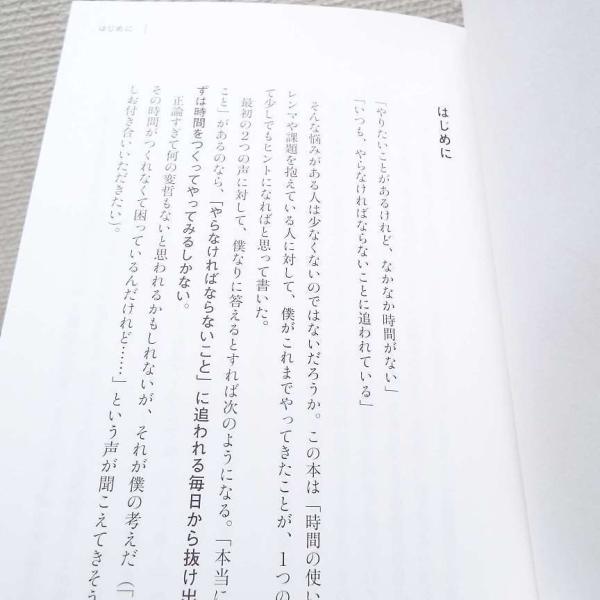 はじめに
はじめに
「やりたいことがあるけれど、なかなか時間がない」
「いつも、やらなければならないことに追われている」
そんな悩みがある人は少なくないのではないだろうか。この本は「時間の使い
レンマや課題を抱えている人に対して、僕がこれまでやってきたことが、1つの
て少しでもヒントになればと思って書いた。
最初の2つの声に対して、僕なりに答えるとすれば次のようになる。「本当に
こと」があるのなら、「やらなければならないこと」に追われる毎日から抜け出
ずは時間をつくってやってみるしかない。
正論すぎて何の変哲もないと思われるかもしれないが、それが僕の考えだ（「
その時間がつくれなくて困っているんだけれど……」という声が聞こえてきそう
しお付き合いいただきたい）。